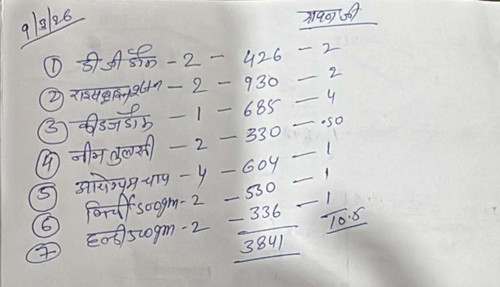 9/3/26
① डी जी डोम - 2 - 426 - 2
② - 2 - 930 - 2
③ कीडजडोम - 1 - 685 - 4
④ नीम तुलसी - 2 - 330 - .50
⑤ आरोग्यम चाय - 4 - 604 - 1
⑥ मिर्ची 500gm - 2 - 530 - 1
⑦ हल्दी 500gm - 2 - 336 - 1
3841 10.5